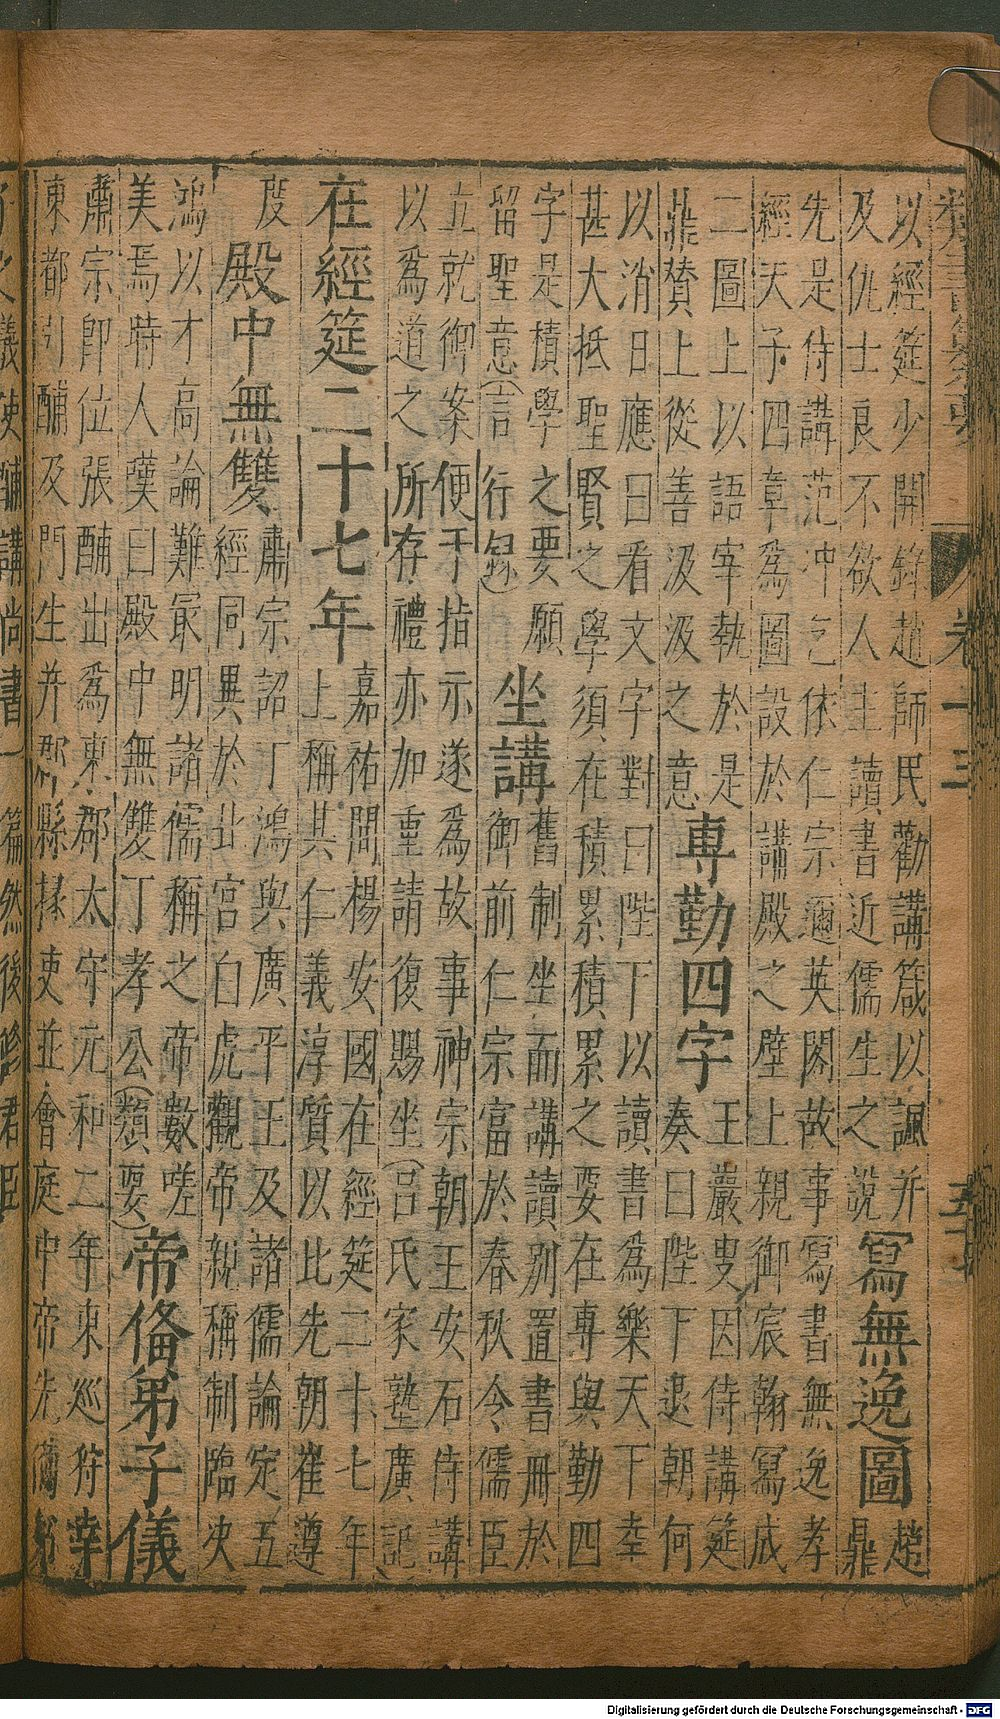 卷十三
以經筵少開錄趙師民勸講箴以諷并
及仇士良不欲人主讀書近儒生之說
寫無逸圖
趙
鼎
先是侍講范冲乞依仁宗邇英閣故事寫書無逸孝
經天子四章為圖設於講殿之壁上親御宸翰寫成
二圖上以語宰執於是
鼎賛上從善汲汲之意
專勤四字
王嚴叟因侍講筵
奏曰陛下退朝何
以消日應曰看文字對曰陛下以讀書爲樂天下幸
甚大抵聖賢之學須在積累積累之要在專與勤四
字是積學之要願
留聖意(言行錄)
坐講
舊制坐而講讀別置書冊於
御前仁宗富於春秋令儒臣
立就御案便于指示遂爲故事神宗朝王安石侍講
以爲道之所存禮亦加重請復賜坐(呂氏家塾廣記)
在經筵二十七年
嘉祐間楊安國在經筵二十七年
上稱其仁義淳質以比先朝崔遵
度
殿中無雙
肅宗詔丁鴻與廣平王及諸儒論定五
經同異於北宮白虎觀帝親稱制臨决
鴻以才高論難最明諸儒稱之帝數嗟
美焉時人嘆曰殿中無雙丁孝公(類要)
帝俻弟子儀
肅宗卽位張酺出爲東郡太守元和二年東巡狩幸
東都引酺及門生并郡縣掾吏並會庭中帝先備
子之儀使酺講尚書一篇然後修君臣
Digitalisierung gefördert durch die Deutsche Forschungsgemeinschaft - DFG